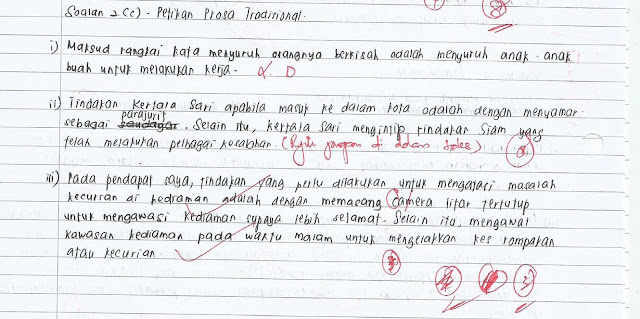 Soalan 2 (c) - Petikan Prosa Tradisional.
8
i) Maksud rangkai kata menyuruh orangnya berkisah adalah menyuruh anak-anak
buah untuk melakukan kerja. 0
ii) Tindakan Kertala Sari apabila masuk ke dalam kota adalah dengan menyamar
parajurit
sebagai saudagar. Selain itu, kertala Sari mengintip tindakan Siam yang
telah melakukan pelbagai kesalahan.
iii) Pada pendapat saya, tindakan yang perlu dilakukan untuk mengatasi masalah
kecurian di kediaman adalah dengan memasang camera litar tertutup
untuk mengawasi kediaman supaya lebih selamat. Selain itu, mengawal
kawasan kediaman pada waktu malam untuk mengelakkan kes rompakan
atau kecurian.
3